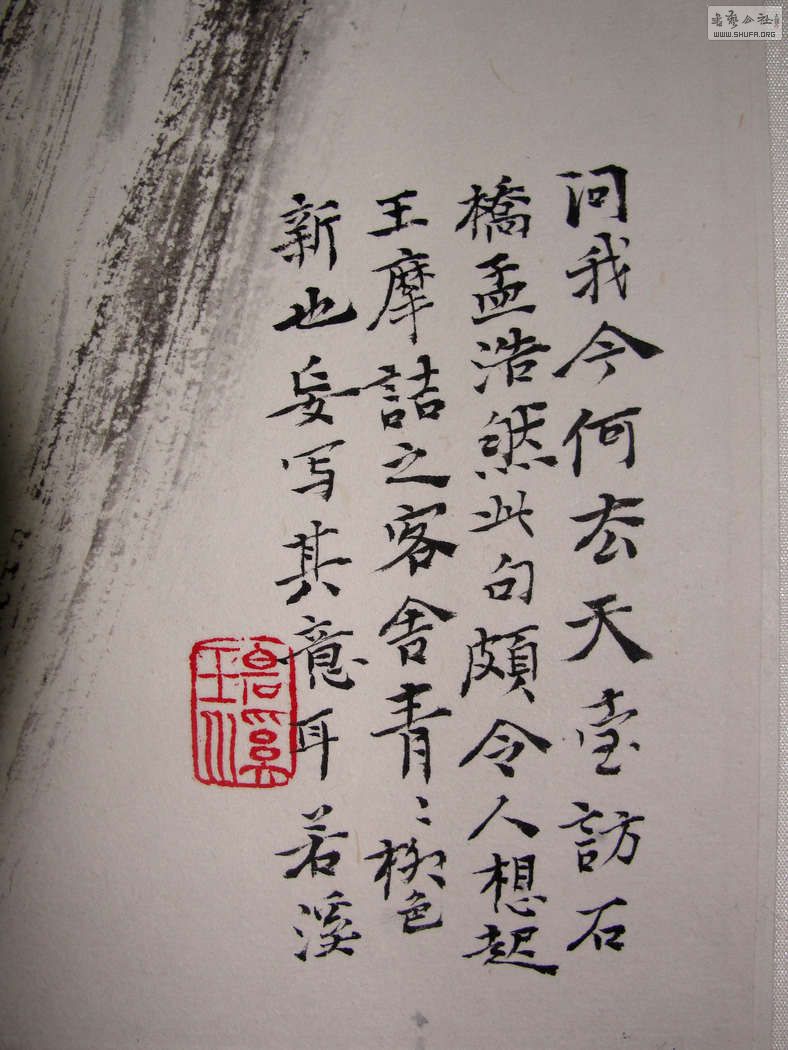 问我今何去天臺訪石
橋孟浩然此句頗令人想起
王摩詰之客舍青〻柳色
新也妄写其意耳若溪
WWW.SHUFA.ORG